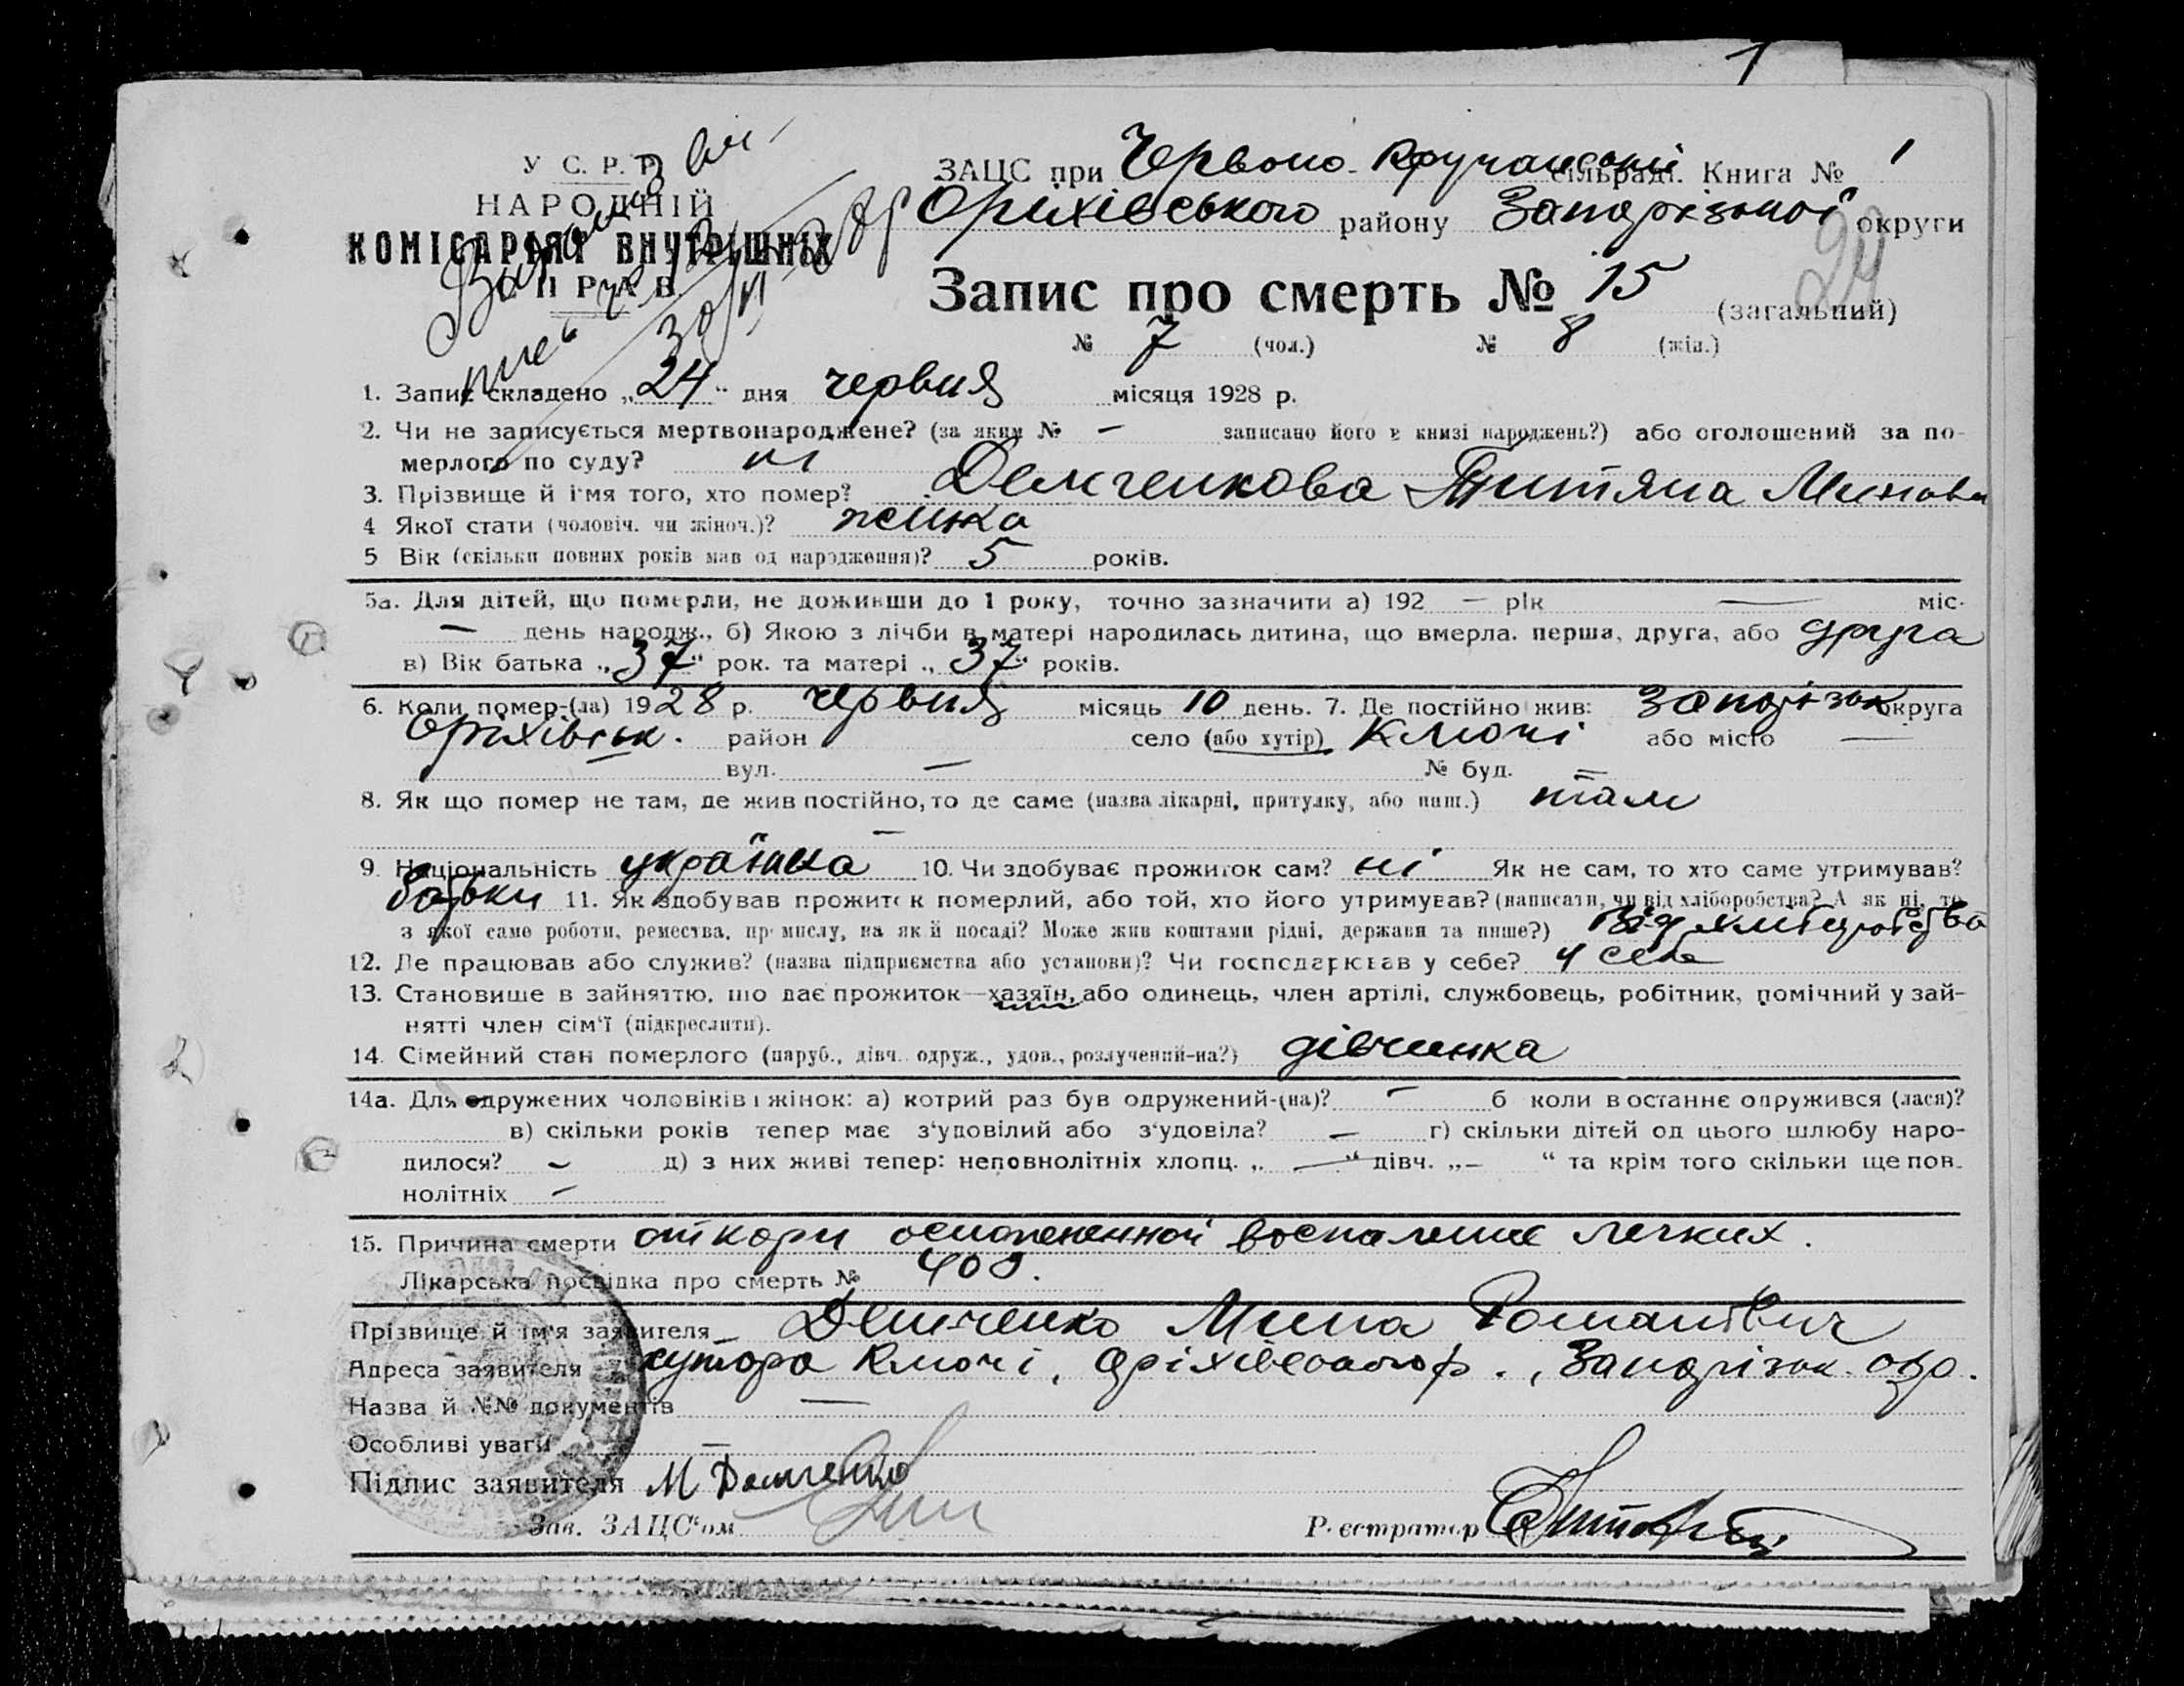 1
У С. Р. Р.
НАРОДНІЙ
КОМІСАРІЯТ ВНУТРІШНІХ
СПРАВ
ЗАЦС при Червоно-Кручанській сільраді. Книга № 1
Оріхівського району Запорізької округи
24
Запис про смерть № 15 (загальний)
№ 7 (чол.) № 8 (жін.)
1. Запис складено „24“ дня червня місяця 1928 р.
2. Чи не записується мертвонароджене? (за яким № — записано його в книзі народжень?) або оголошений за по-
мерлого по суду? ні
3. Прізвище й ім'я того, хто помер? Демченкова Титяна Минова
4 Якої стати (чоловіч. чи жіноч.)? жінка
5 Вік (скільки повних років мав од народження)? 5 років.
5а. Для дітей, що померли, не доживши до 1 року, точно зазначити а) 192 — рік — міс.
— день народж., б) Якою з лічби в матері народилась дитина, що вмерла. перша, друга, або друга
в) Вік батька „37“ рок. та матері „37“ років.
6. Коли помер-(ла) 1928 р. червня місяць 10 день. 7. Де постійно жив: Запорізьк округа
Оріхівськ. район село (або хутір) Ключі або місто —
вул. — № буд. =
8. Як що помер не там, де жив постійно, то де саме (назва лікарні, притулку, або инш.) там
—
9. Національність українка 10. Чи здобуває прожиток сам? ні Як не сам, то хто саме утримував?
батьки 11. Як здобував прожиток померлий, або той, хто його утримував? (написати, чи від хліборобства? А як ні, то
з якої саме роботи, ремества, промислу, на якій посаді? Може жив коштами рідні, держави та инше?) Від хліборобства
12. Де працював або служив? (назва підприємства або установи)? Чи господарював у себе? у себе
13. Становище в зайняттю, що дає прожиток—хазяїн, або одинець, член артілі, службовець, робітник, помічний у зай-
нятті член сім'ї (підкреслити).
14. Сімейний стан померлого (паруб., дівч. одруж., удов., розлучений-на?) дівчинка
14а. Для одружених чоловіків і жінок: а) котрий раз був одружений-(на)? — б коли востаннє одружився (лася)?
в) скільки років тепер має з'удовілий або з'удовіла? — г) скільки дітей од цього шлюбу наро-
дилося? — д) з них живі тепер: неповнолітніх хлопц. „—“ дівч. „—“ та крім того скільки ще пов-
нолітніх —
15. Причина смерти от кори осложненной воспаление легких.
Лікарська посвідка про смерть № 408.
Прізвище й ім'я заявителя Демченко Мина Романович
Адреса заявителя хутора Ключі, Оріхівського р., Запорізьк. окр.
Назва й №№ документів —
Особливі уваги —
Підпис заявителя М Демченко
Зав. ЗАЦС'ом
Реєстратор